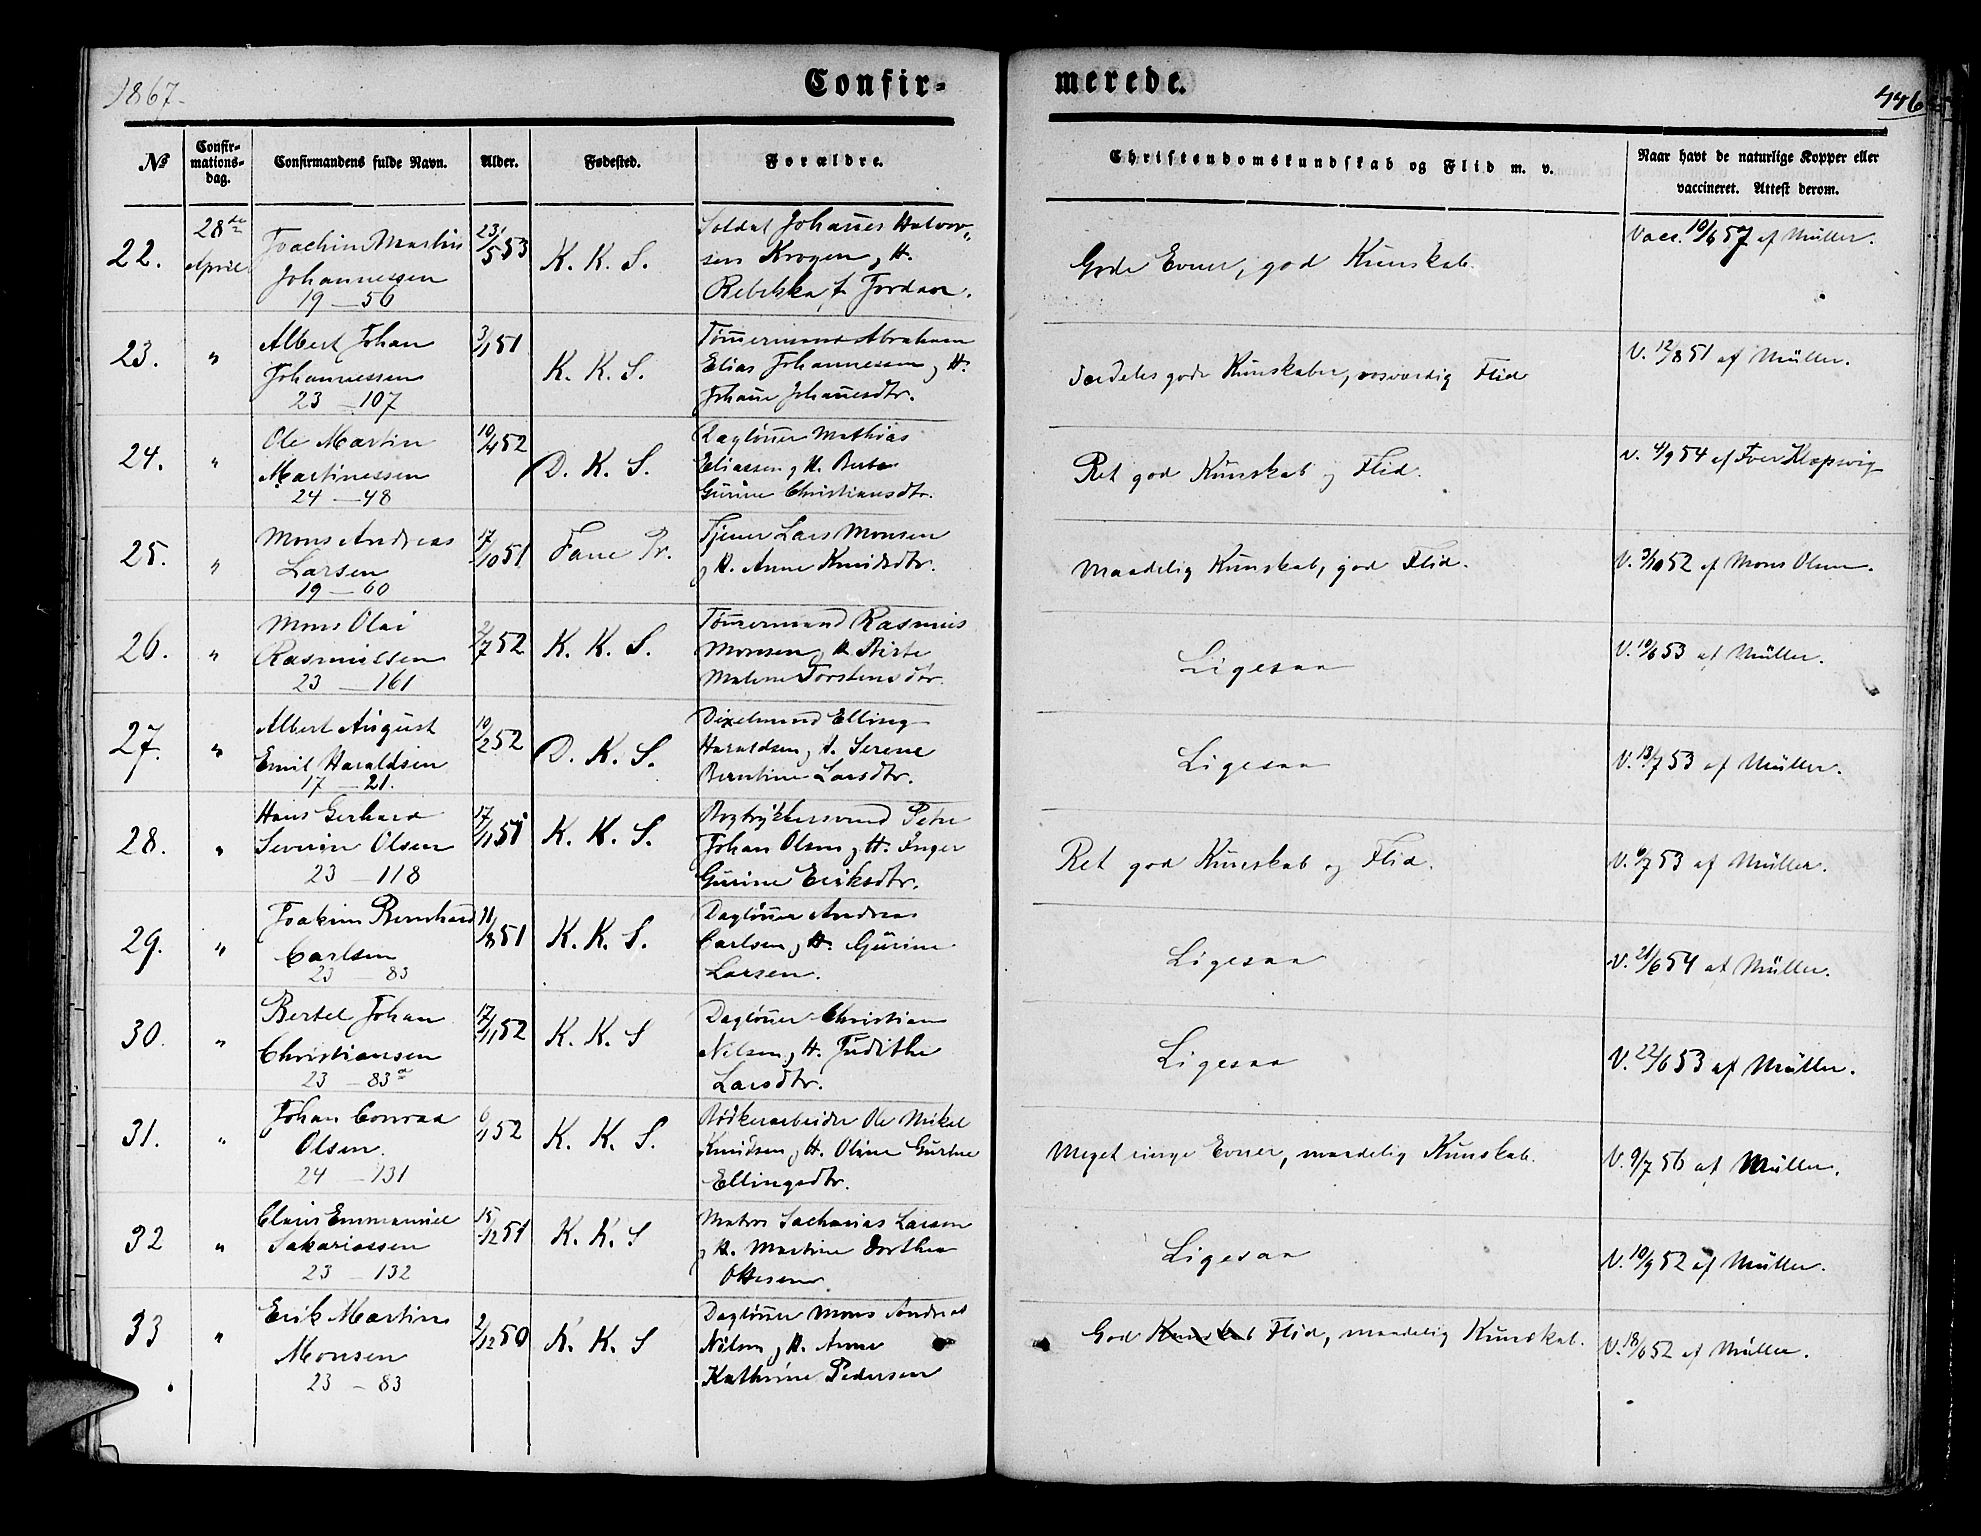 1867.
Confir-
merede.
446
No
Confir-
mations-
dag.
Confirmandens fulde Navn.
Alder.
Fødested.
Forældre.
Christendomskundskab og Flid m. v.
Naar havt de naturlige Kopper eller
vaccineret. Attest derom.
22.
28de
April
Joachim Martin
Johannessen
19 — 50
23/5 53
K. K. S.
Soldat Johanes Halvor-
sen Krogen, H.
Rebekka f. Jordan.
Gode Evner, god Kunskab.
Vacc. 10/6 57 af Müller.
23.
"
Albert Johan
Johannessen
23 — 107
3/1 51
K. K. S.
Tømmermand Abraham
Elias Johannessen og H.
Johane Johanesdtr.
Særdeles gode Kunskaber, rosværdig Flid
V. 12/8 51 af Müller.
24.
"
Ole Martin
Martinessen
24 — 48
10/4 52
D. K. S.
Dagløner Mathias
Eliassen og H. Berte
Gurine Christiansdtr.
Ret god Kunskab og Flid.
V. 4/9 54 af Iver Klopvig
25.
"
Mons Andreas
Larsen
19 — 60
17/10 51
Fane Pr.
Tjener Lars Monsen
og H. Anne Knudsdtr.
Maadelig Kunskab, god Flid.
V. 3/10 52 af Mons Olsen.
26.
"
Mons Olai
Rasmussen
23 — 161
2/7 52
K. K. S.
Tømmermand Rasmus
Monsen og H. Birte
Malene Torstensdtr.
Ligesaa
V. 10/6 53 af Müller.
27.
"
Albert August
Emil Haraldsen
17 — 21.
10/2 52
D. K. S.
Dixelmand Elling
Haraldsen og H. Serene
Berntine Larsdtr.
Ligesaa
V. 13/7 53 af Müller.
28.
"
Hans Gerhard
Severin Olsen
23 — 118
17/11 51
K. K. S.
Bogtrykkersvend Peter
Johan Olsen og H. Inger
Gurine Eriksdtr.
Ret god Kunskab og Flid.
V. 6/7 53 af Müller.
29.
"
Joakim Bernhard
Carlsen
23 — 83
11/8 51
K. K. S.
Dagløner Andreas
Carlsen og H. Gurine
Larsen.
Ligesaa
V. 21/6 54 af Müller.
30.
"
Bertel Johan
Christiansen
23 — 83a
17/1 52
K. K. S
Dagløner Christian
Nilsen og H. Judithe
Larsdtr.
Ligesaa
V. 22/6 53 af Müller.
31.
"
Johan Conrad
Olsen.
24 — 131
6/1 52
K. K. S.
Bødkerarbeider Ole Mikal
Knudsen og H. Oline Gurine
Ellingsdtr.
Meget ringe Evner, maadelig Kunskab.
V. 9/7 56 af Müller.
32
"
Claus Emmanuel
Sakariassen
23 — 132
15/12 51
K. K. S
Matros Sacharias Larsen
og H. Martine Dorthea
Ottesen
Ligesaa
V. 10/9 52 af Müller.
33
"
Erik Martin
Monsen
23 — 83
2/12 50
K. K. S
Dagløner Mons Andreas
Nilsen og H. Anne
Kathrine Pedersen
God Kunskab Flid, maadelig Kunskab.
V. 18/6 52 af Müller.